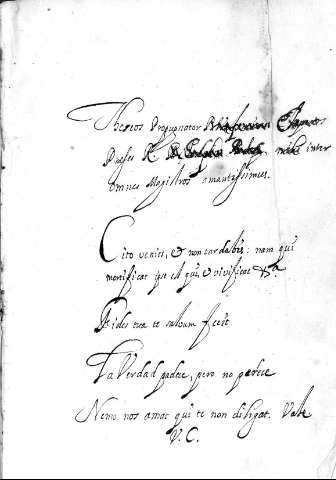 Theses Propugnator
Præses inter
omnes Magistros amantissimus.
Cito veniet, & non tardabit: nam qui
mortificat ipse est qui, & vivificat
Fides tua te salvum fecit
La Verdad padece, pero no perece
Nemo nos amat qui te non diligat. Vale
V. C.